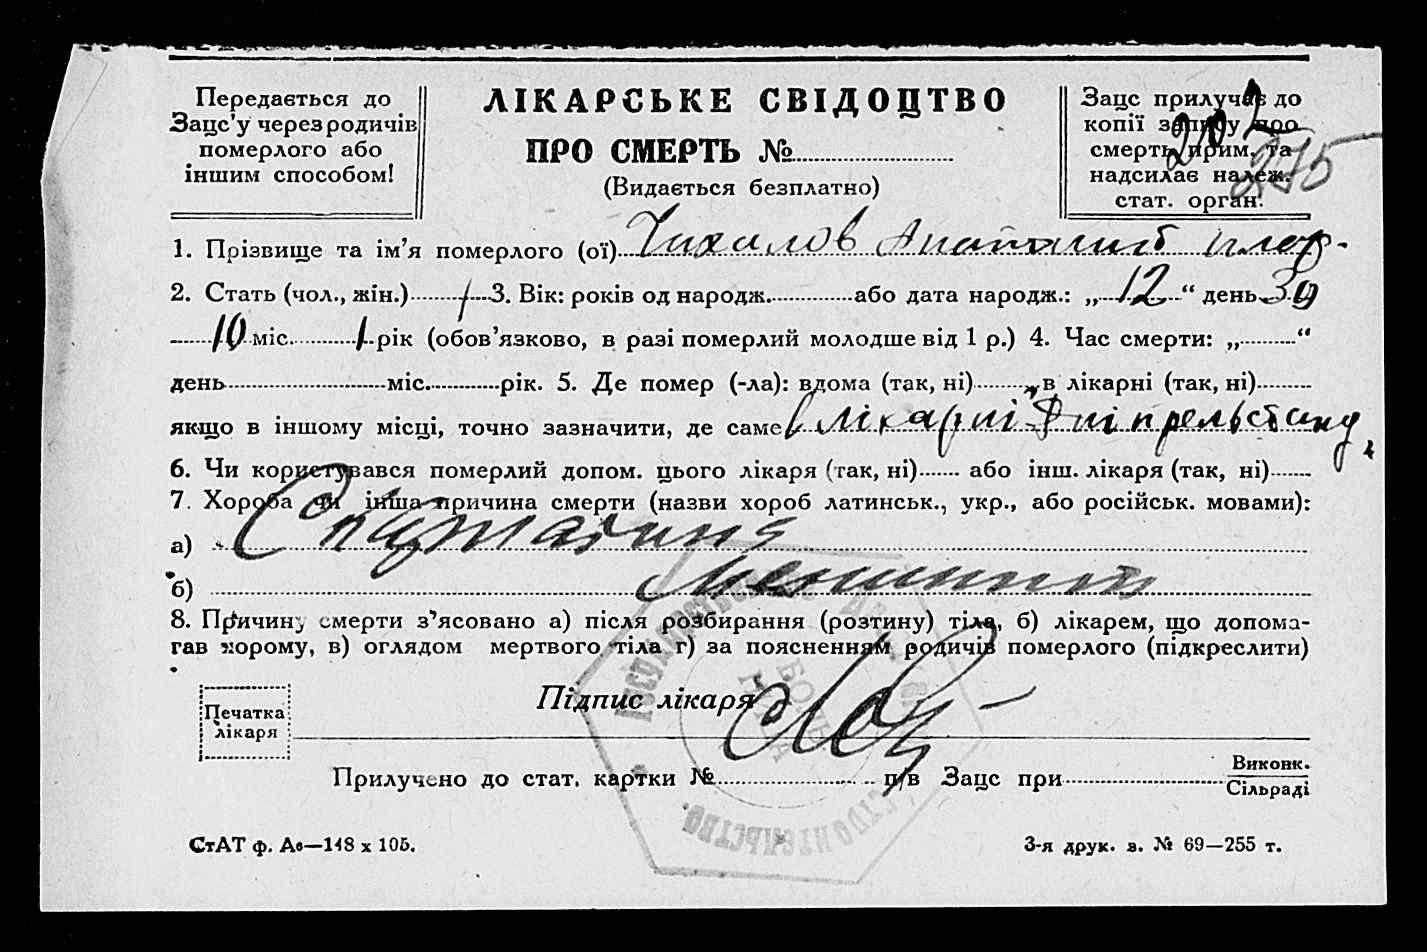 Передається до
Зацс'у через родичів
померлого або
іншим способом!
ЛІКАРСЬКЕ СВІДОЦТВО
ПРО СМЕРТЬ №
(Видається безплатно)
Зацс прилучає до
копії запису про
смерть, прим. та
надсилає належ.
стат. орган.
275
1. Прізвище та ім'я померлого (ої) Чихалов Анатолий
2. Стать (чол., жін.) 3. Вік: років од народж. або дата народж.: „ 12 “ день 30
10 міс. 1 рік (обов'язково, в разі померлий молодше від 1 р.) 4. Час смерти: „ “
день міс. рік. 5. Де помер (-ла): вдома (так, ні) , в лікарні (так, ні)
якщо в іншому місці, точно зазначити, де саме в лікарні Дніпрельстану
6. Чи користувався померлий допом. цього лікаря (так, ні) або інш. лікаря (так, ні)
7. Хороба чи інша причина смерти (назви хороб латинськ., укр., або російськ. мовами):
а) Скарлатина
б) Менингит
8. Причину смерти з'ясовано а) після розбирання (розтину) тіла, б) лікарем, що допома-
гав хорому, в) оглядом мертвого тіла г) за поясненням родичів померлого (підкреслити)
Печатка
лікаря
Підпис лікаря
Прилучено до стат. картки № п/в Зацс при Виковк.
Сільраді
СтАТ ф. Ав—148 х 105.
3-я друк. з. № 69—255 т.